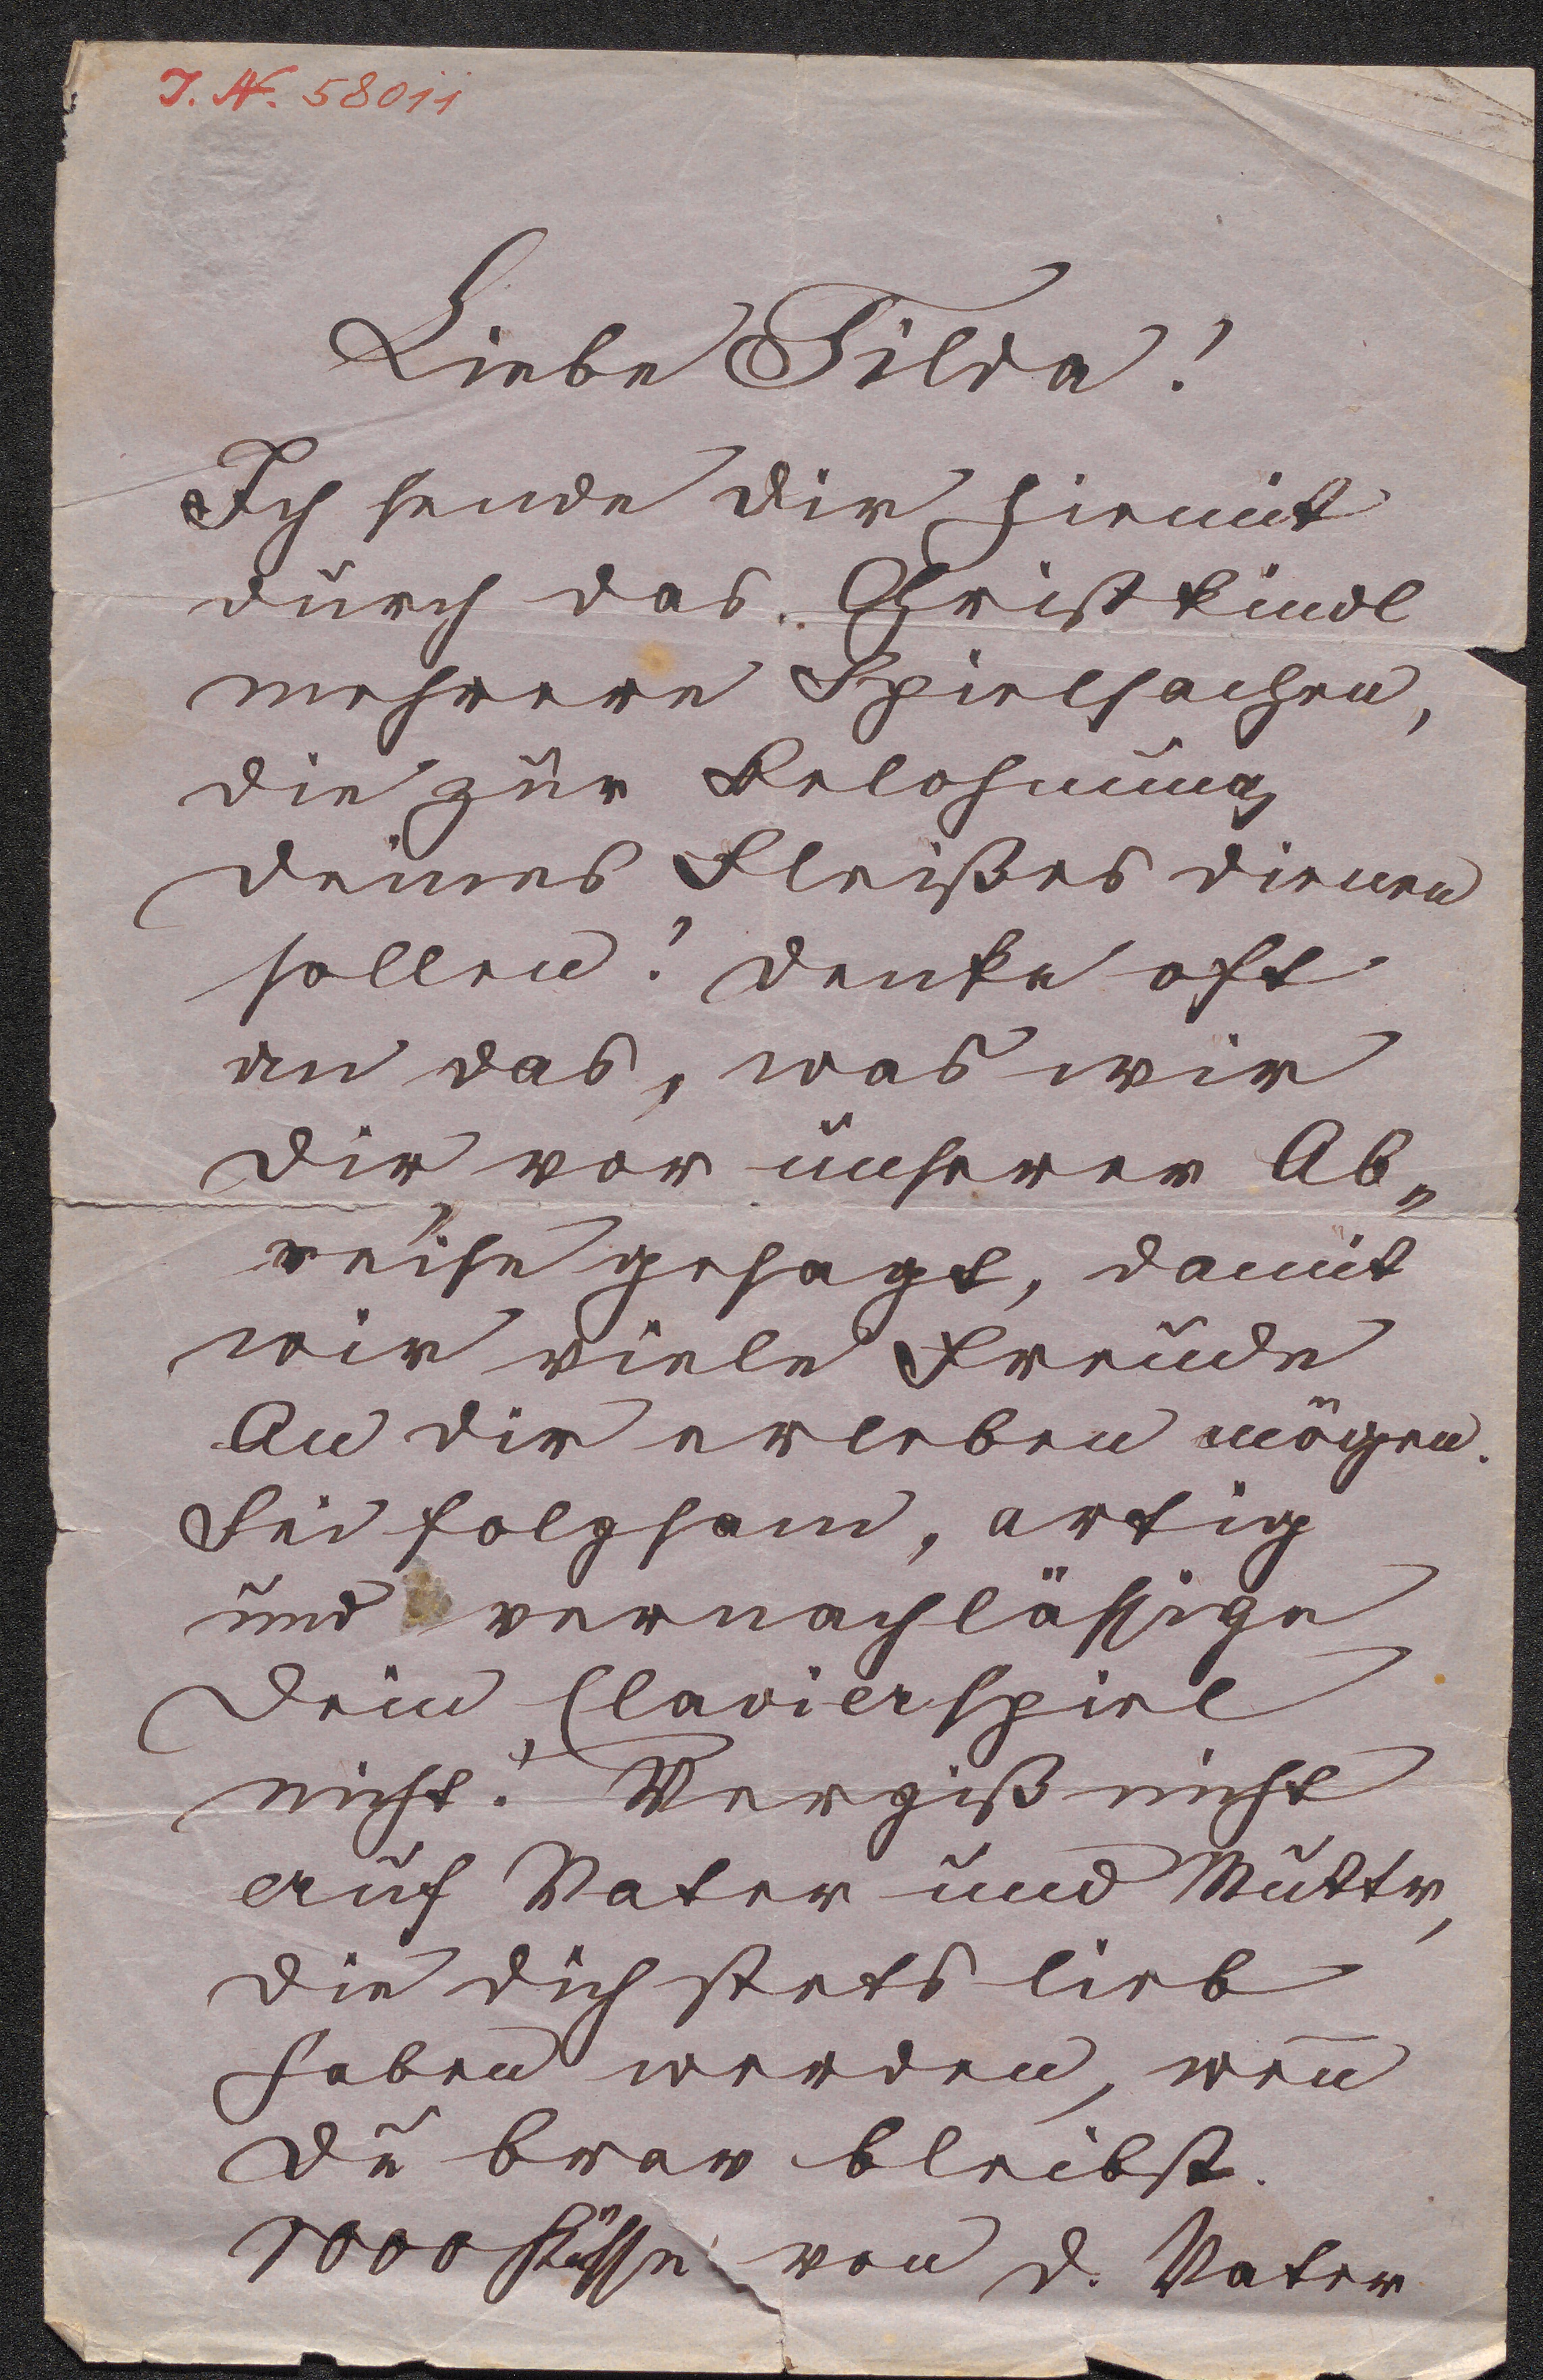 I. N. 58011
Liebe Tilda!
Ich sende dir hiemit
durch das Christkindl
mehrere Spielsachen,
die zur Belohnung
deines Fleißes dienen
sollen! Denke oft
an das, was wir
dir vor unserer Ab„
reise gesagt, damit
wir viele Freude
An dir erleben mögen.
Sei folgsam, artig
und vernachlässige
dein Clavierspiel
nicht! Vergiß nicht
auf Vater und Muttr,
die dich stets lieb
haben werden, wen̄
du brav bleibst.
1000 Küsse von d. Vater